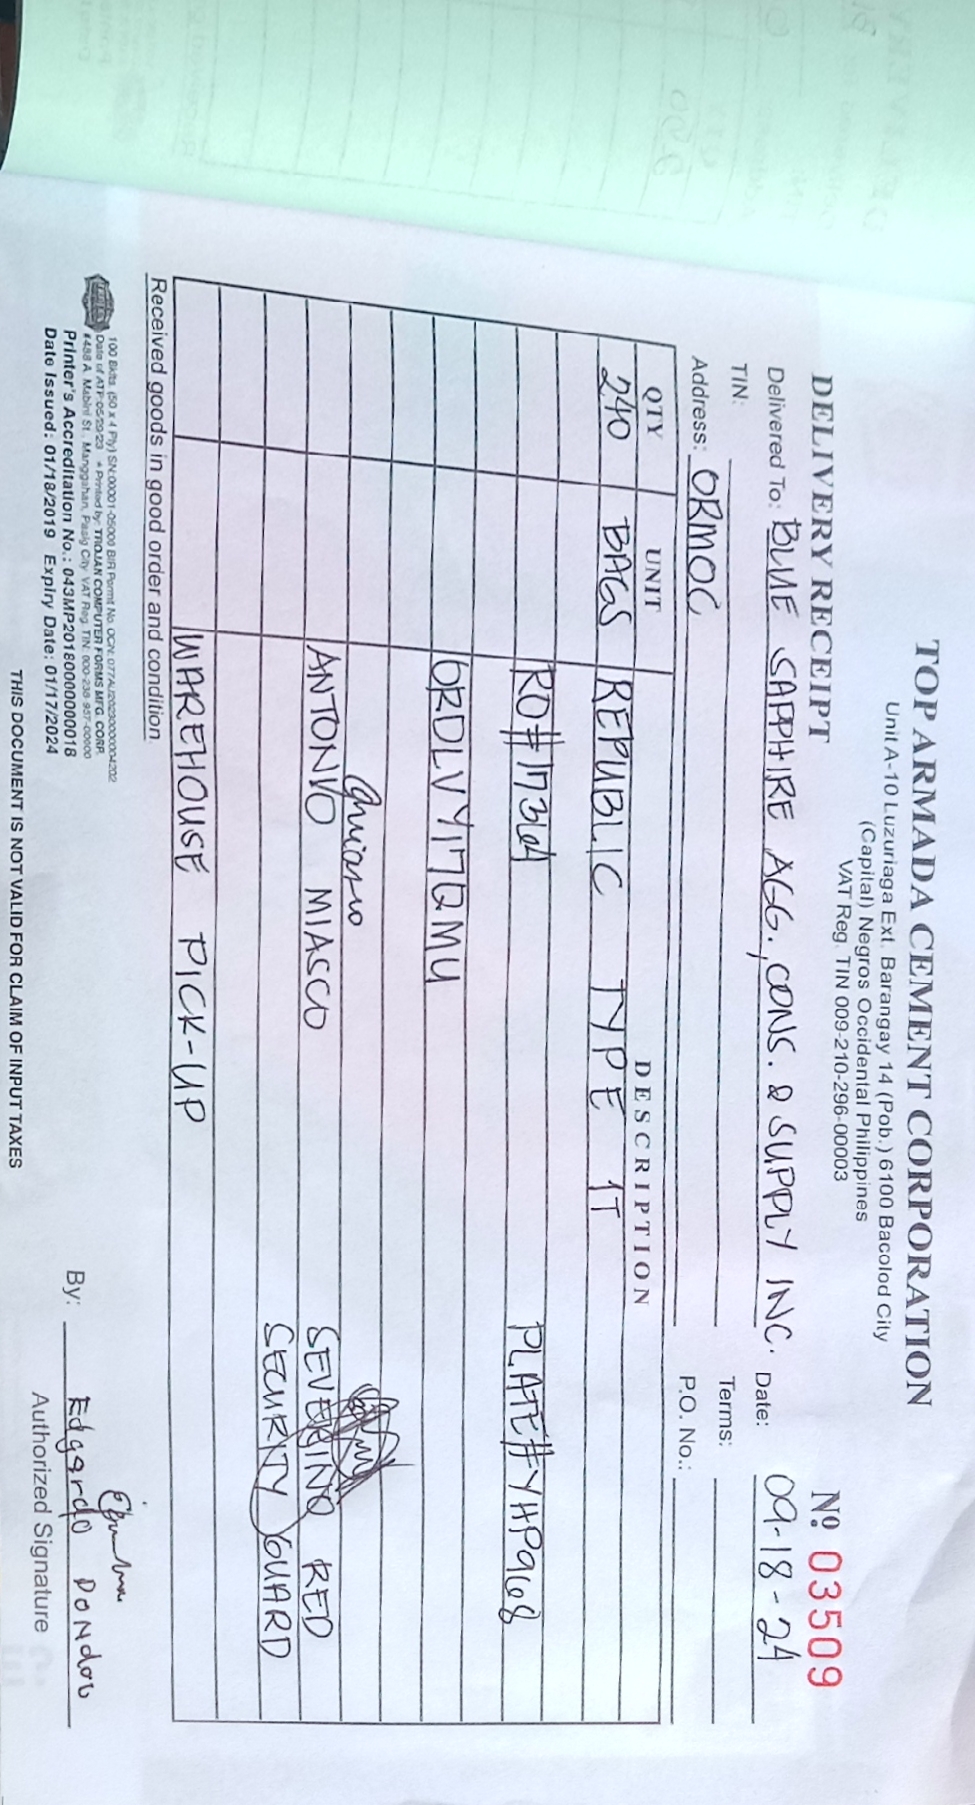 TOP ARMADA CEMENT CORPORATION
Unit A-10 Luzuriaga Ext. Barangay 14 (Pob.) 6100 Bacolod City
(Capital) Negros Occidental Philippines
VAT Reg. TIN 009-210-296-00003
DELIVERY RECEIPT
Nº 03509
Delivered To: BLUE SAPPHIRE AGG., CONS. & SUPPLY INC. Date: 09-18-24
TIN: Terms:
Address: ORMOC P.O. No.:
QTY UNIT DESCRIPTION
240 BAGS REPUBLIC TYPE 1T
RO# 17364 PLATE# YHP968
ORDLVY177QMU
ANTONIO MIASCO SEVERINO RED
SECURTY GUARD
WAREHOUSE PICK-UP
Received goods in good order and condition.
100 Bklts. (50 x 4 Ply) SN:00001-05000 BIR Permit No. OCN: 077AU20230000004202
Date of ATP:05/29/23 • Printed by: TROJAN COMPUTER FORMS MFG. CORP.
#488 A. Mabini St., Manggahan, Pasig City VAT Reg. TIN: 000-238-957-00000
Printer's Accreditation No.: 043MP20180000000018
Date Issued: 01/18/2019 Expiry Date: 01/17/2024
By: Edgardo
Authorized Signature
THIS DOCUMENT IS NOT VALID FOR CLAIM OF INPUT TAXES